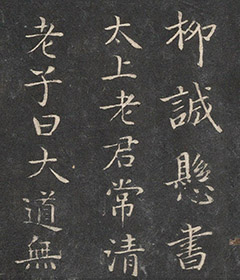 柳誠懸書
太上老君常清
老子曰大道無